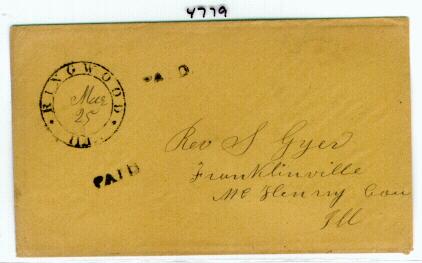 4779
RINGWOOD
Mar
25
ILL.
PAID
PAID
Rev S Gyer
Franklinville
Mc Henry Cou
Ill